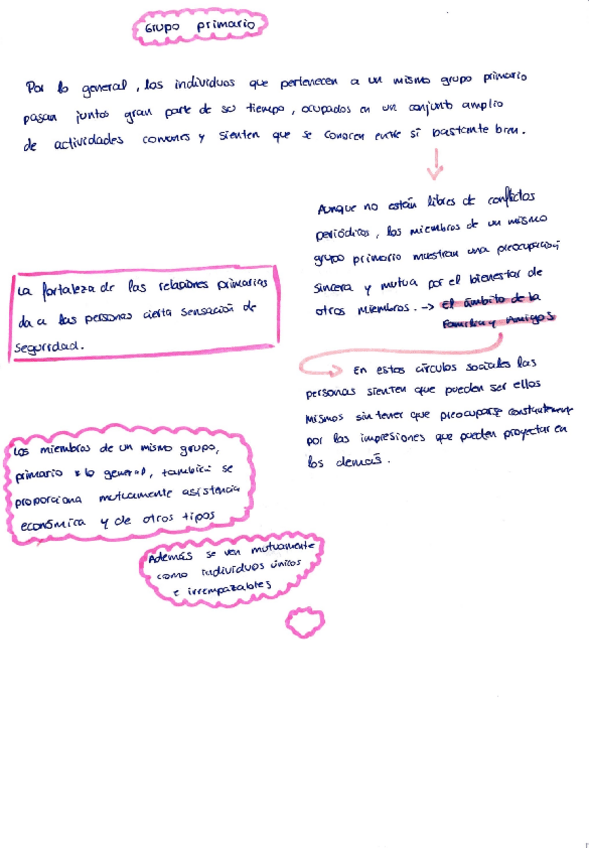 Grupo primario
Por lo general, los individuos que pertenecen a un mismo grupo primario
pasan juntos gran parte de su tiempo, ocupados en un conjunto amplio
de actividades comunes y sienten que se conocen entre sí bastante bien.
Aunque no están libres de conflictos
periódicos, los miembros de un mismo
grupo primario muestran una preocupación
sincera y mutua por el bienestar de
otros miembros. → El ámbito de la
Familia y Amigos
La fortaleza de las relaciones primarias
da a las personas cierta sensación de
seguridad.
En estos círculos sociales las
personas sienten que pueden ser ellos
mismos sin tener que preocuparse constantemente
por las impresiones que pueden proyectar en
los demás.
Los miembros de un mismo grupo,
primario x lo general, también se
proporciona mutuamente asistencia
económica y de otros tipos
Además se ven mutuamente
como individuos únicos
e irrempazables